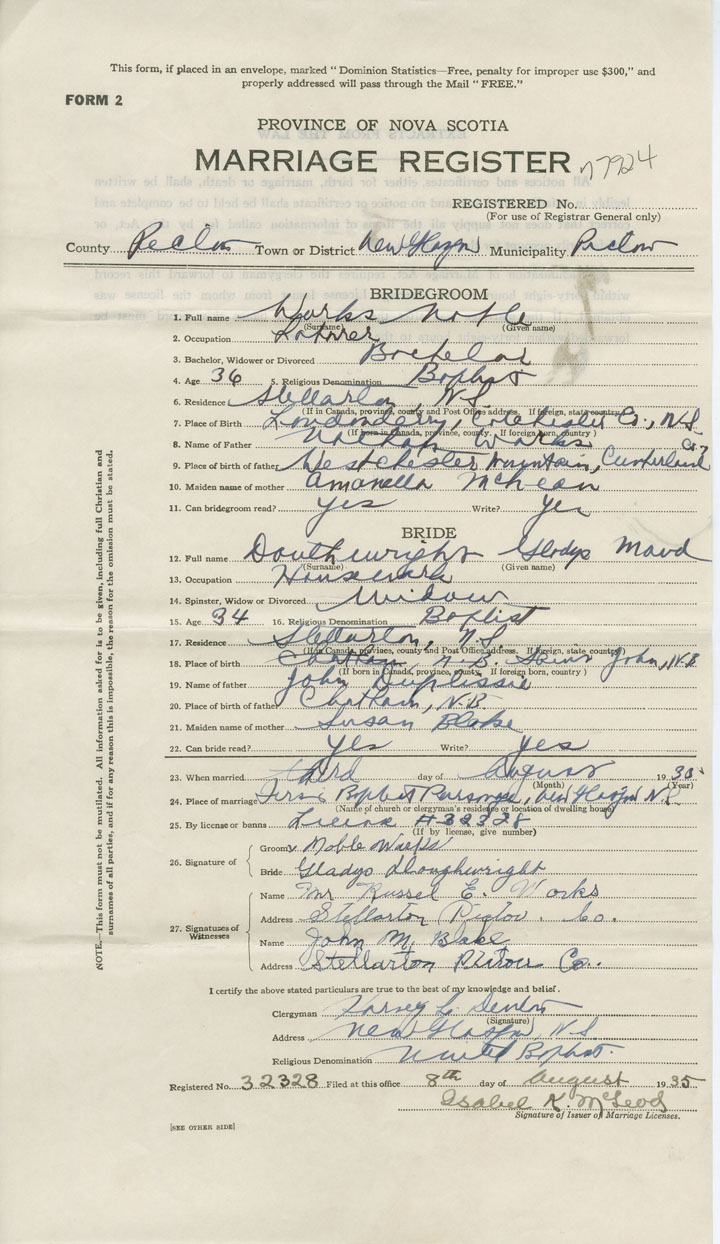 This form, if placed in an envelope, marked “Dominion Statistics—Free, penalty for improper use $300,” and
properly addressed will pass through the Mail “FREE.”
FORM 2
PROVINCE OF NOVA SCOTIA
MARRIAGE REGISTER 7924
REGISTERED No.
(For use of Registrar General only)
County Pictou Town or District New Glasgow Municipality Pictou
BRIDEGROOM
1. Full name Works Noble
(Surname) (Given name)
2. Occupation
3. Bachelor, Widower or Divorced Bachelor
4. Age 36 5. Religious Denomination Baptist
6. Residence Stellarton, N.S.
(If in Canada, province, county and Post Office address. If foreign, state country)
7. Place of Birth Londonderry, Colchester Co., N.S.
(If born in Canada, province, county. If foreign born, country)
8. Name of Father Works
9. Place of birth of father Westchester Mountain, Cumberland Co.
10. Maiden name of mother McLean
11. Can bridegroom read? Yes Write? Yes
BRIDE
12. Full name Douthwright Gladys Maud
(Surname) (Given name)
13. Occupation Housework
14. Spinster, Widow or Divorced Widow
15. Age 34 16. Religious Denomination Baptist
17. Residence Stellarton, N.S.
(If in Canada, province, county and Post Office address. If foreign, state country)
18. Place of birth Chatham, N.B. John, N.B.
(If born in Canada, province, county. If foreign born, country)
19. Name of father John Duplissie
20. Place of birth of father Chatham, N.B.
21. Maiden name of mother Susan Blake
22. Can bride read? Yes Write? yes
23. When married third day of August 1935
(Month) (Year)
24. Place of marriage First Baptist Parsonage, New Glasgow N.S.
(Name of church or clergyman's residence or location of dwelling house)
25. By license or banns License #32328
(If by license, give number)
26. Signature of
Groom Noble Works
Bride Gladys Doughwright
27. Signatures of Witnesses
Name Mr Russel E. Works
Address Stellarton Pictou Co.
Name John M. Blake
Address Stellarton Pictou Co.
I certify the above stated particulars are true to the best of my knowledge and belief.
Clergyman Harvey
(Signature)
Address New Glasgow, N.S.
Religious Denomination United Baptist.
Registered No. 32328 Filed at this office 8th day of August 1935
Isabel K. McLeod
Signature of Issuer of Marriage Licenses.
[SEE OTHER SIDE]
NOTE.—This form must not be mutilated. All information asked for is to be given, including full Christian and
surnames of all parties, and if for any reason this is impossible, the reason for the omission must be stated.